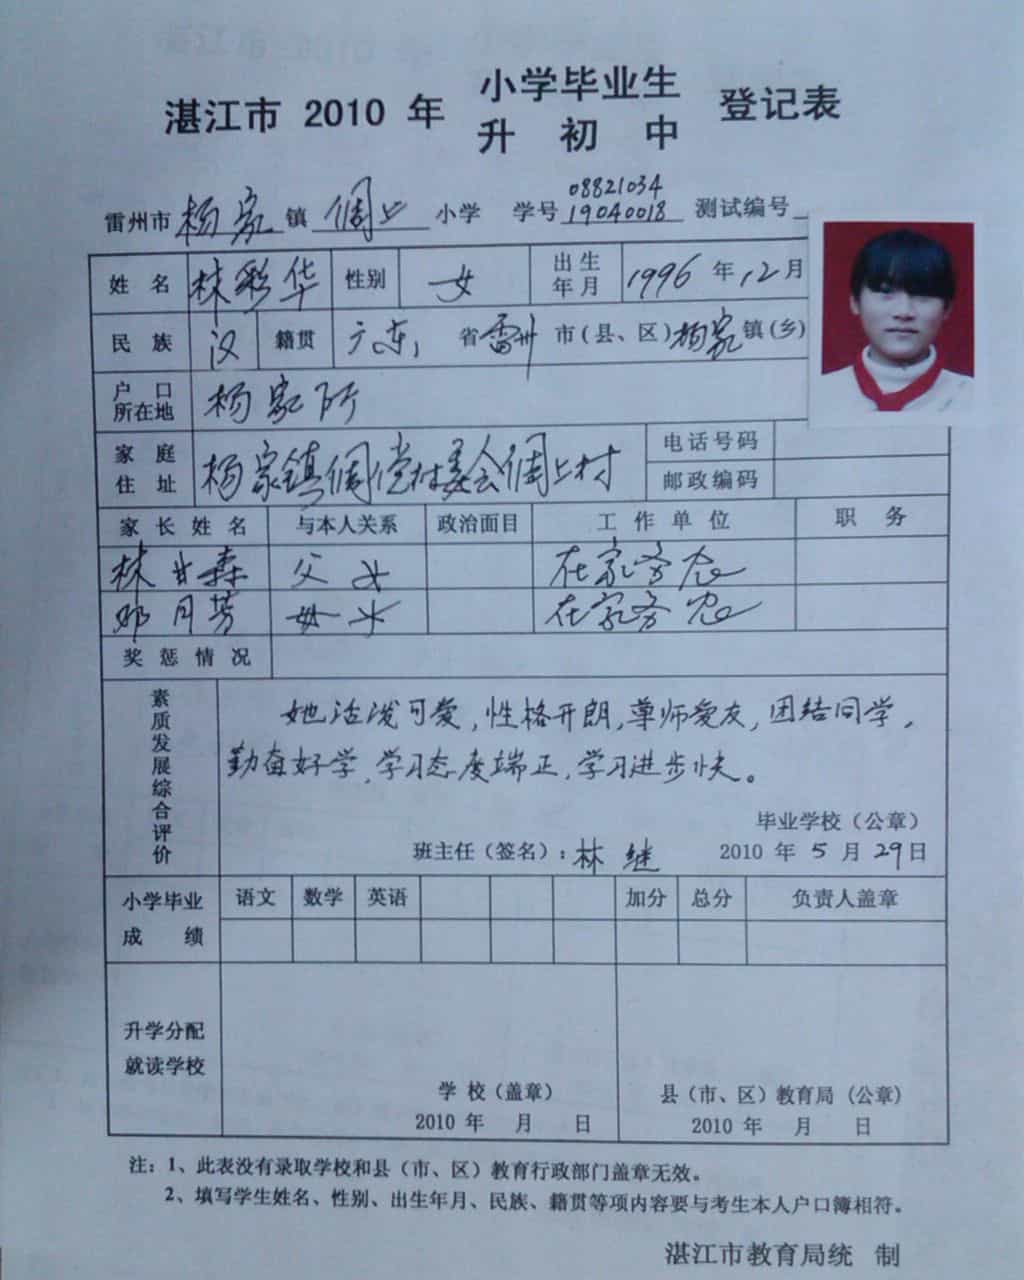 湛江市 2010 年 小学毕业生 升初中 登记表
雷州市 杨家 镇 倜上 小学 学号 08821034 19040018 测试编号
姓名 林彩华 性别 女 出生年月 1996 年 12 月
民族 汉 籍贯 广东 省 雷州 市(县、区) 杨家 镇(乡)
户口所在地 杨家所
家庭住址 杨家镇倜党村委会倜上村 电话号码
邮政编码
家长姓名 与本人关系 政治面目 工作单位 职务
林甘森 父女 在家务农
邓月芳 母女 在家务农
奖惩情况
素质发展综合评价
她活泼可爱,性格开朗,尊师爱友,团结同学,
勤奋好学,学习态度端正,学习进步快。
毕业学校(公章)
班主任(签名):林继 2010 年 5 月 29 日
小学毕业成绩 语文 数学 英语 加分 总分 负责人盖章
升学分配
就读学校
学校(盖章) 县(市、区)教育局(公章)
2010 年 月 日 2010 年 月 日
注:1、此表没有录取学校和县(市、区)教育行政部门盖章无效。
2、填写学生姓名、性别、出生年月、民族、籍贯等项内容要与考生本人户口簿相符。
湛江市教育局统 制